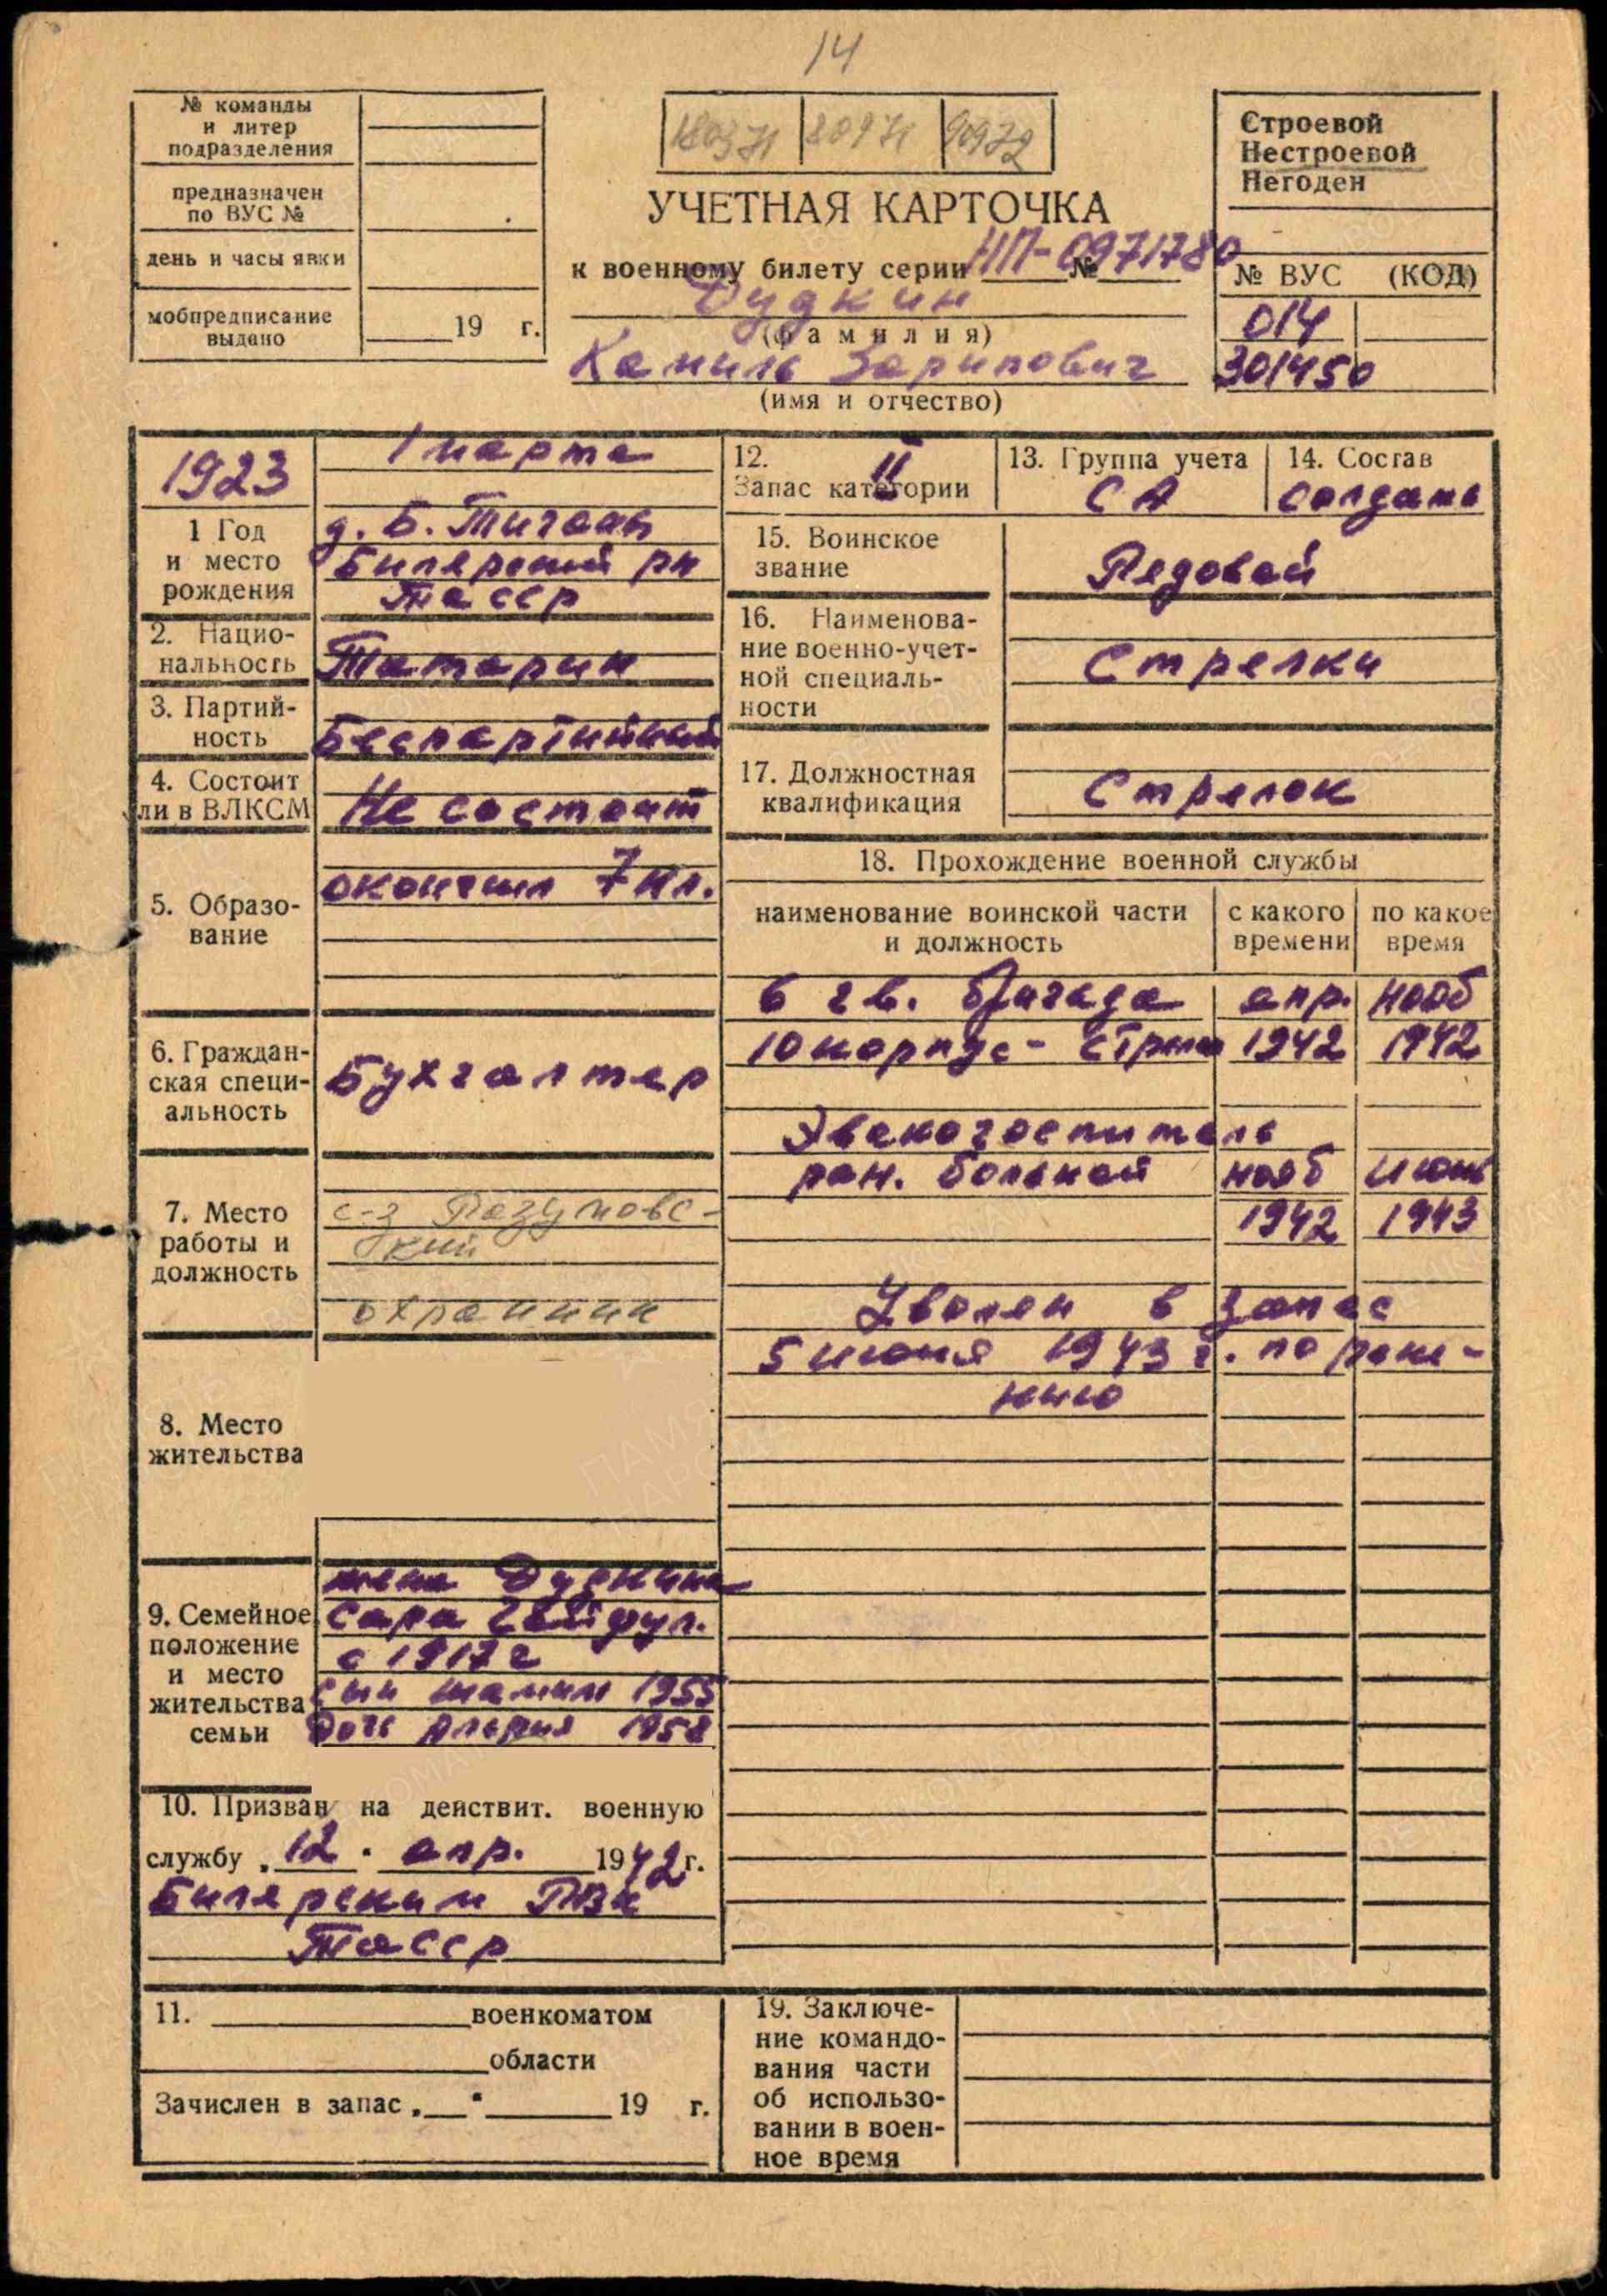 14
№ команды
и литер
подразделения
предназначен
по ВУС №
день и часы явки
мобпредписание
выдано
19 г.
УЧЕТНАЯ КАРТОЧКА
к военному билету серии НП- № 0971780
Дудкин
(фамилия)
Камиль Зарипович
(имя и отчество)
Строевой
Нестроевой
Негоден
№ ВУС (КОД)
014
301450
1923
1 Год
и место
рождения
1 марта
д. Б. Тиганы
Билярский рн
ТАССР
2. Нацио-
нальность
Татарин
3. Партий-
ность
Беспартийный
4. Состоит
ли в ВЛКСМ
Не состоит
5. Образо-
вание
окончил 7 кл.
6. Граждан-
ская специ-
альность
Бухгалтер
7. Место
работы и
должность
с-з Разумовс-
кий
охранник
8. Место
жительства
9. Семейное
положение
и место
жительства
семьи
жена Дудкина
Сара
с 1917 г
сын Шамиль 1955
дочь 1958
10. Призван на действит. военную
службу „12" апр. 1942 г.
Билярским РВК
ТАССР
11. военкоматом
области
Зачислен в запас „ " 19 г.
12.
Запас категории
II
13. Группа учета
СА
14. Состав
солдаты
15. Воинское
звание
Рядовой
16. Наименова-
ние военно-учет-
ной специаль-
ности
Стрелки
17. Должностная
квалификация
Стрелок
18. Прохождение военной службы
наименование воинской части
и должность
с какого
времени
по какое
время
6 гв. бригада апр. нояб
10 корпус - стрелок 1942 1942
Эвакогоспиталь
ран. больной нояб июнь
1942 1943
Уволен в запас
5 июня 1943 г. по ране-
нию
19. Заключе-
ние командо-
вания части
об использо-
вании в воен-
ное время